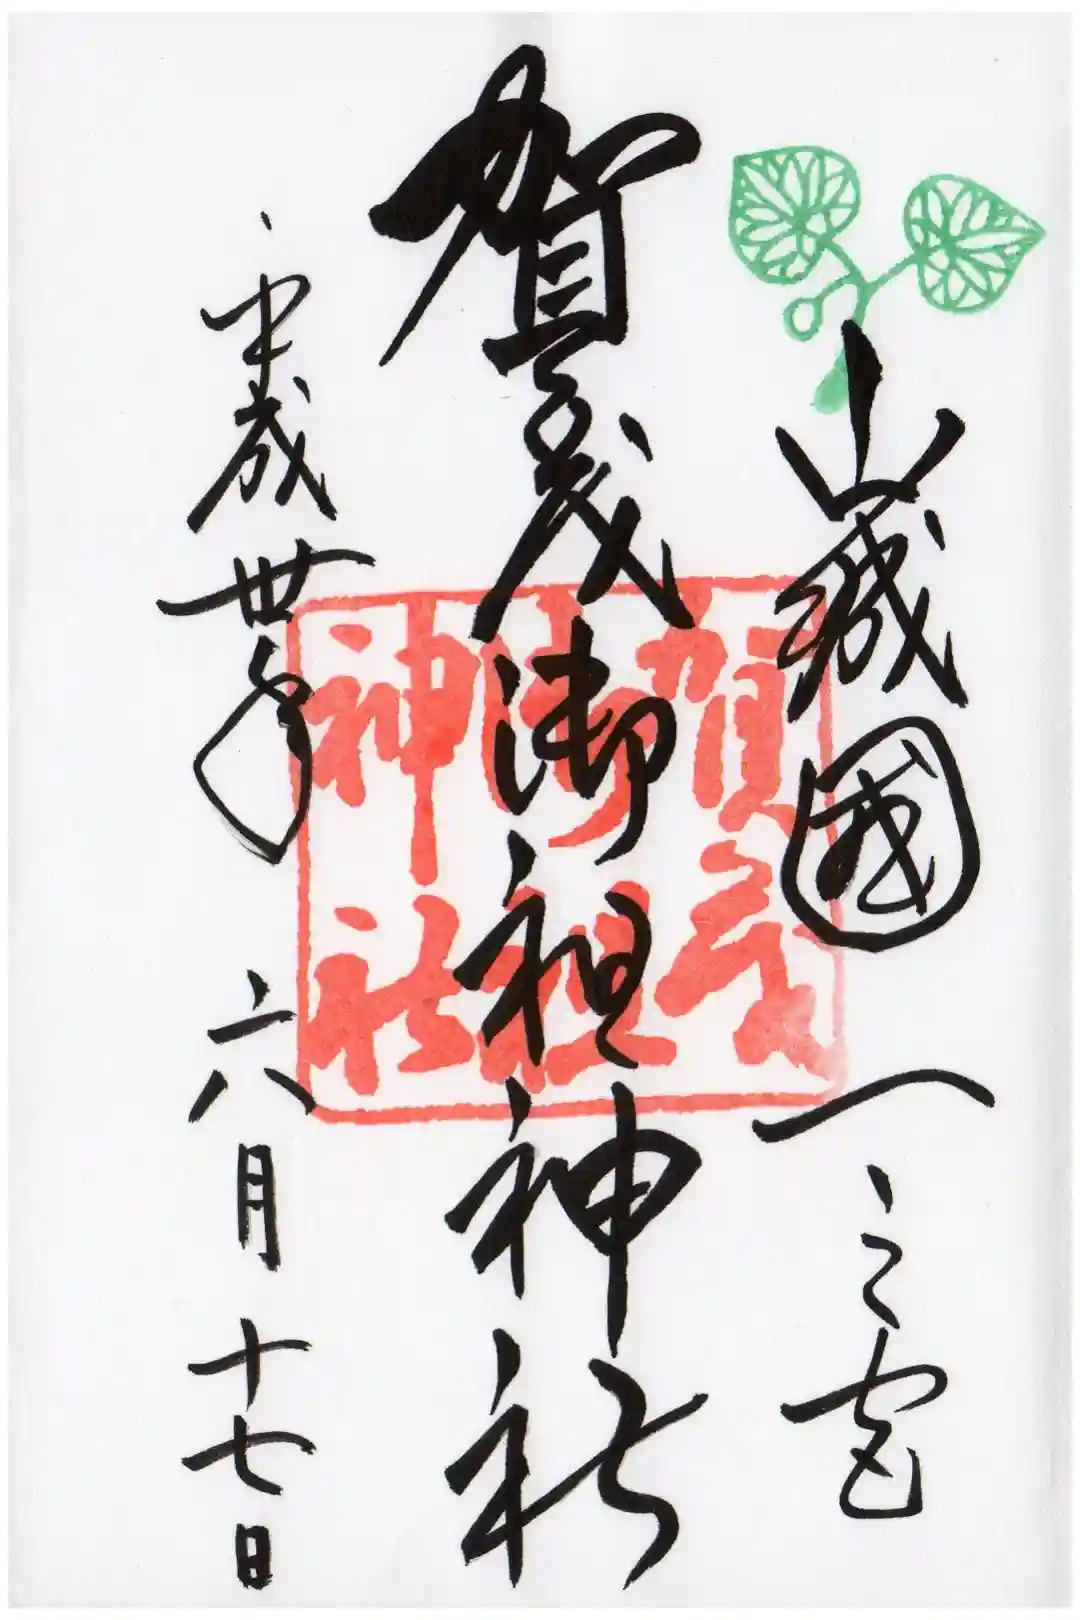 山城國一之宮
賀茂御祖神社
賀茂
御祖
神社
平成丗年六月十七日